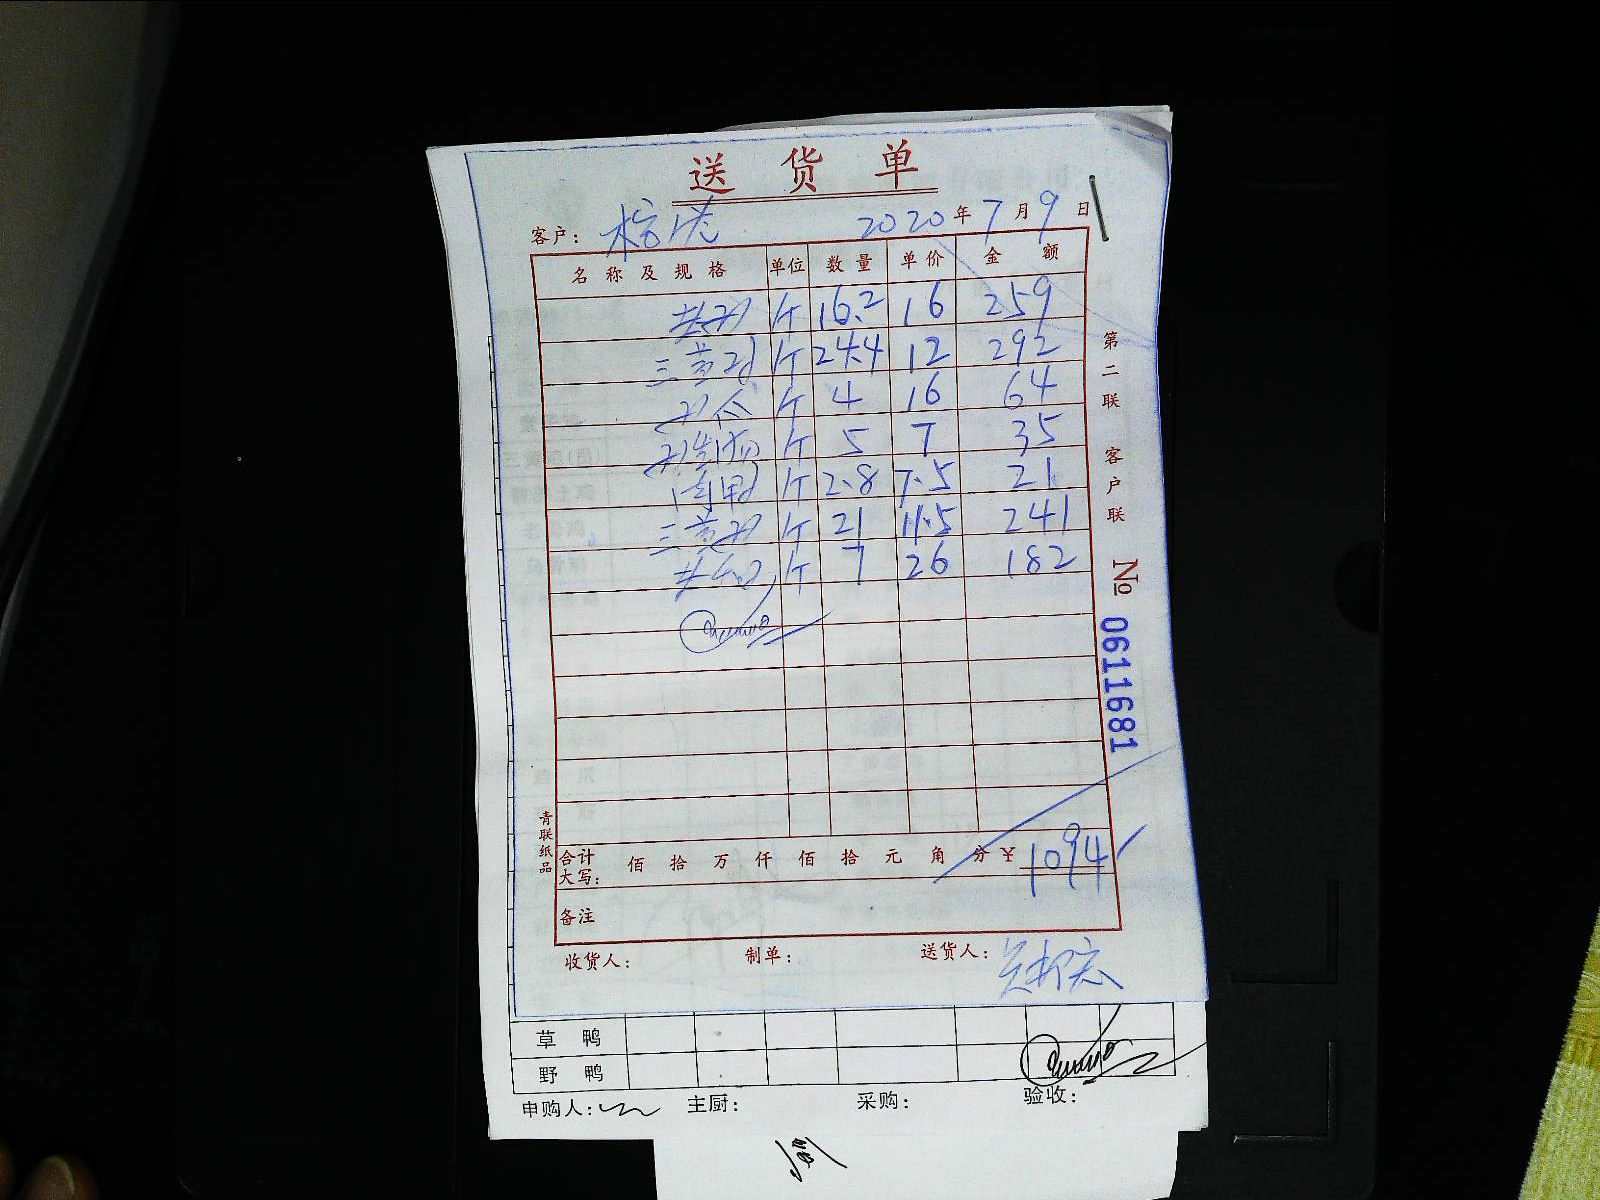 送货单
客户: 2020年7月9日
名称及规格 单位 数量 单价 金额
斤 16.2 16 259
三黄鸡 斤 24.4 12 292
斤 4 16 64
斤 5 7 35
斤 2.8 7.5 21
三黄鸡 斤 21 11.5 241
斤 7 26 182
合计大写: 佰 拾 万 仟 佰 拾 元 角 分 ¥ 1094
备注
收货人: 制单: 送货人:
第二联 客户联
№ 0611681
青联纸品
草鸭
野鸭
申购人: 主厨: 采购: 验收: